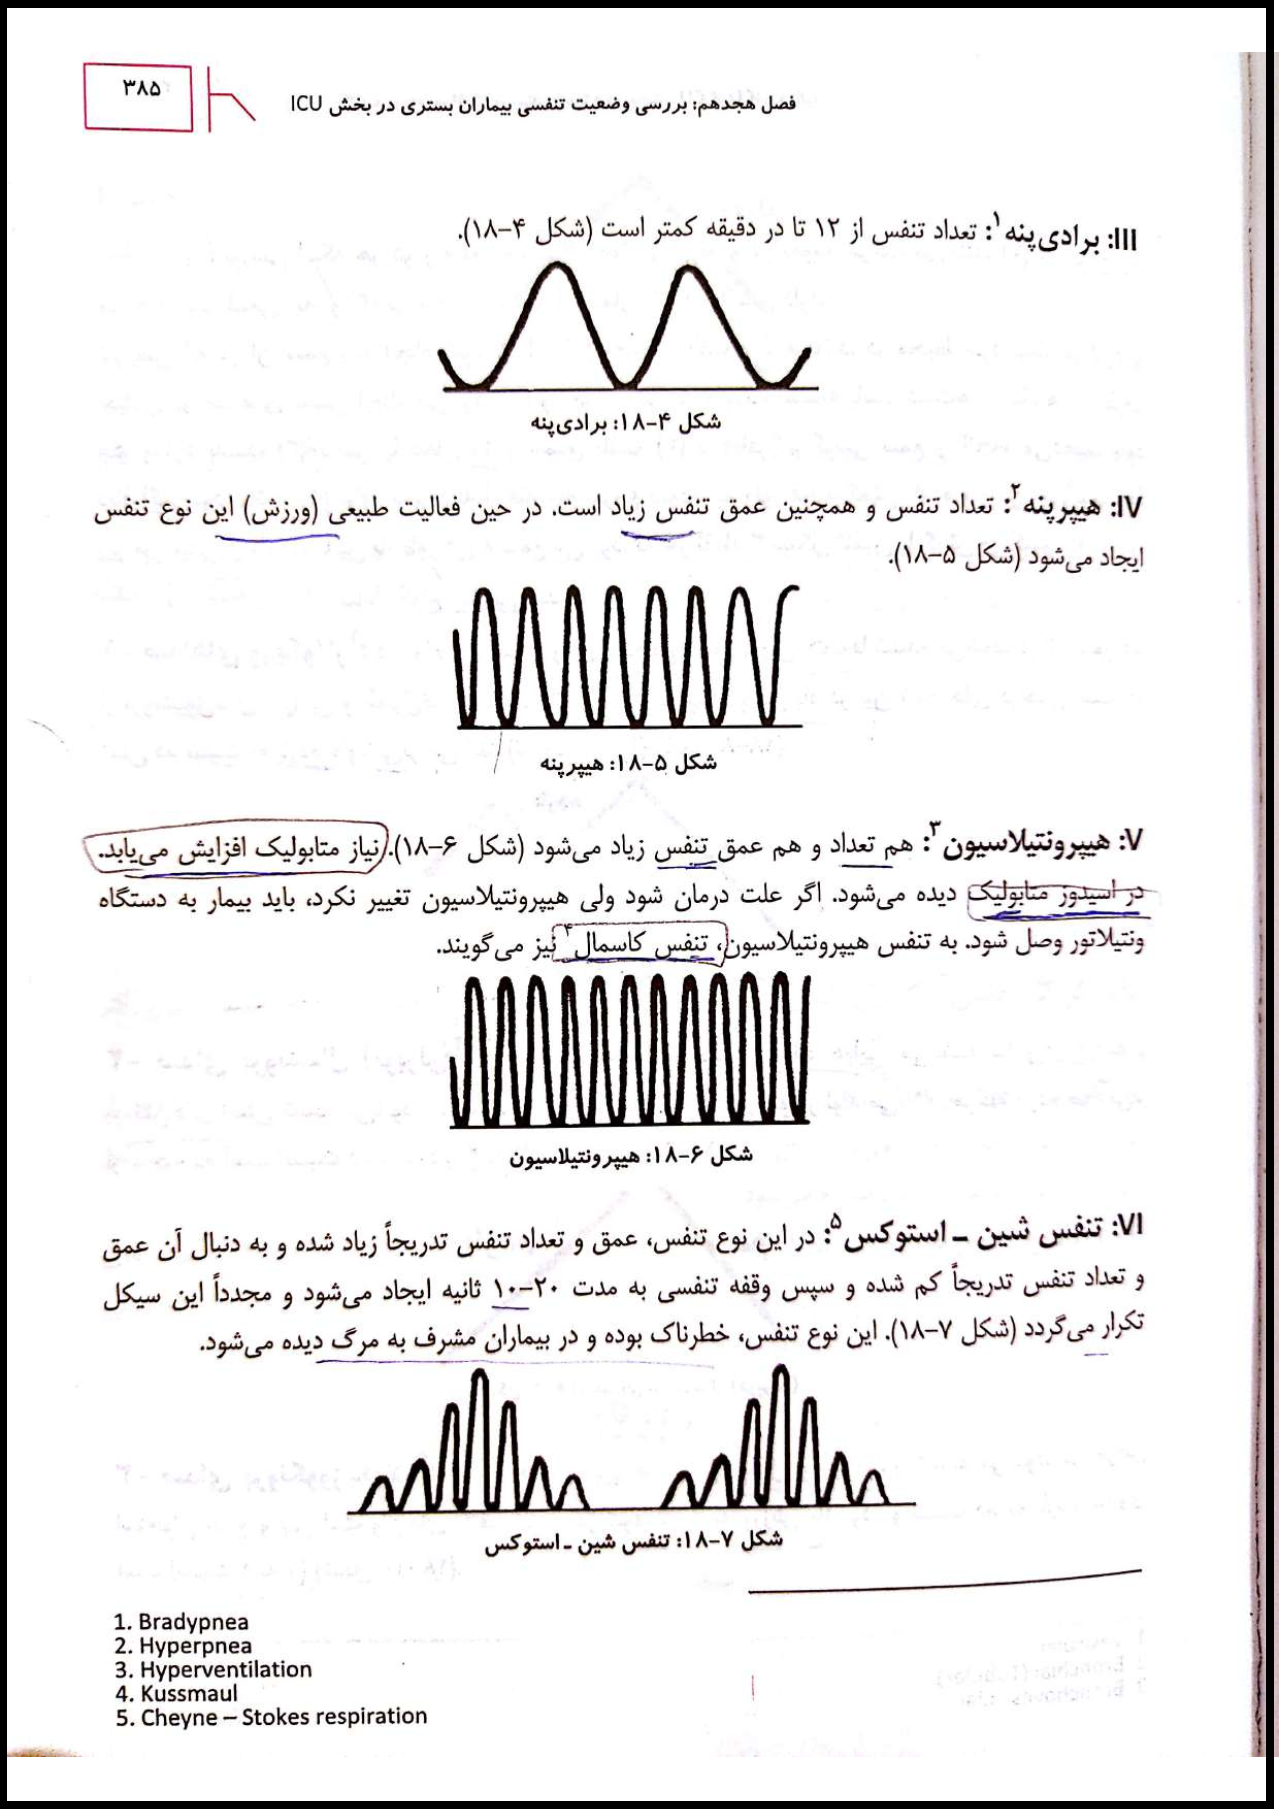 ۳۸۵
فصل هجدهم: بررسی وضعیت تنفسی بیماران بستری در بخش ICU
III: برادی‌پنه۱: تعداد تنفس از ۱۲ تا در دقیقه کمتر است (شکل ۴–۱۸).
شکل ۴–۱۸: برادی‌پنه
IV: هیپرپنه۲: تعداد تنفس و همچنین عمق تنفس زیاد است. در حین فعالیت طبیعی (ورزش) این نوع تنفس
ایجاد می‌شود (شکل ۵–۱۸).
شکل ۵–۱۸: هیپرپنه
V: هیپرونتیلاسیون۳: هم تعداد و هم عمق تنفس زیاد می‌شود (شکل ۶–۱۸). نیاز متابولیک افزایش می‌یابد.
در اسیدوز متابولیک دیده می‌شود. اگر علت درمان شود ولی هیپرونتیلاسیون تغییر نکرد، باید بیمار به دستگاه
ونتیلاتور وصل شود. به تنفس هیپرونتیلاسیون، تنفس کاسمال۴ نیز می‌گویند.
شکل ۶–۱۸: هیپرونتیلاسیون
VI: تنفس شین ـ استوکس۵: در این نوع تنفس، عمق و تعداد تنفس تدریجاً زیاد شده و به دنبال آن عمق
و تعداد تنفس تدریجاً کم شده و سپس وقفه تنفسی به مدت ۲۰–۱۰ ثانیه ایجاد می‌شود و مجدداً این سیکل
تکرار می‌گردد (شکل ۷–۱۸). این نوع تنفس، خطرناک بوده و در بیماران مشرف به مرگ دیده می‌شود.
شکل ۷–۱۸: تنفس شین ـ استوکس
1. Bradypnea
2. Hyperpnea
3. Hyperventilation
4. Kussmaul
5. Cheyne – Stokes respiration